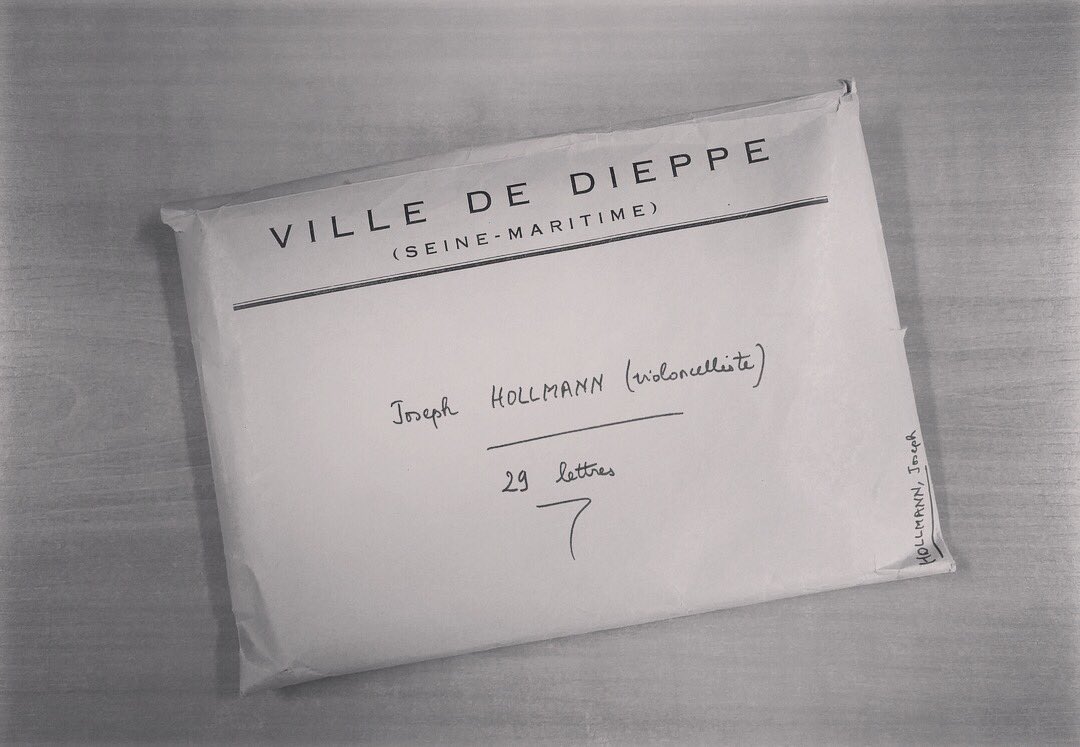 VILLE DE DIEPPE
(SEINE-MARITIME)
Joseph HOLLMANN (violoncelliste)
29 lettres
HOLLMANN, Joseph